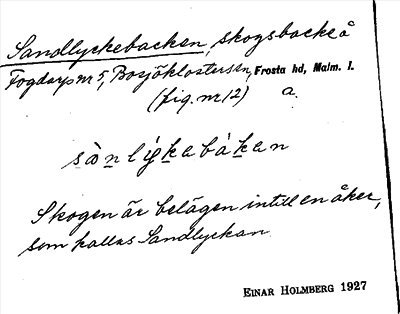 Sandlyckebacken, skogsbacke å
Fogdarp nr 5, Bosjöklosters sn, Frosta hd, Malm. l.
(fig. nr 12) a.
sànlỳkabàkan
Skogen är belägen intill en åker,
som kallas Sandlyckan.
EINAR HOLMBERG 1927